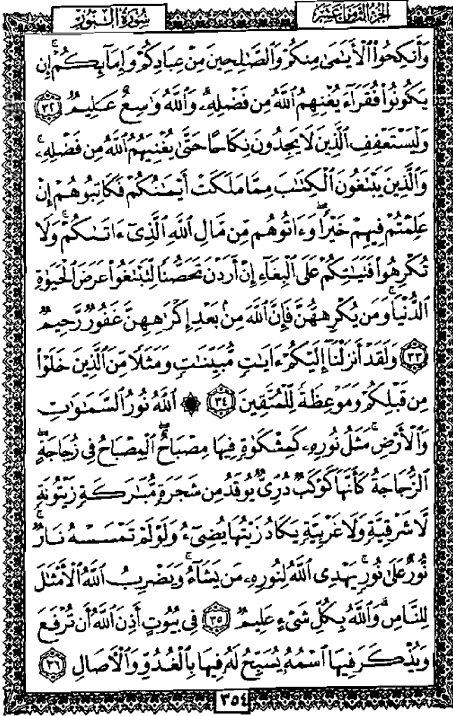 الجزء الثامن عشر
سورة النور
وَأَنكِحُوا۟ ٱلْأَيَٰمَىٰ مِنكُمْ وَٱلصَّٰلِحِينَ مِنْ عِبَادِكُمْ وَإِمَآئِكُمْ ۚ إِن
يَكُونُوا۟ فُقَرَآءَ يُغْنِهِمُ ٱللَّهُ مِن فَضْلِهِۦ ۗ وَٱللَّهُ وَٰسِعٌ عَلِيمٌ ٣٢
وَلْيَسْتَعْفِفِ ٱلَّذِينَ لَا يَجِدُونَ نِكَاحًا حَتَّىٰ يُغْنِيَهُمُ ٱللَّهُ مِن فَضْلِهِۦ ۗ
وَٱلَّذِينَ يَبْتَغُونَ ٱلْكِتَٰبَ مِمَّا مَلَكَتْ أَيْمَٰنُكُمْ فَكَاتِبُوهُمْ إِنْ
عَلِمْتُمْ فِيهِمْ خَيْرًا ۖ وَءَاتُوهُم مِّن مَّالِ ٱللَّهِ ٱلَّذِىٓ ءَاتَىٰكُمْ ۚ وَلَا
تُكْرِهُوا۟ فَتَيَٰتِكُمْ عَلَى ٱلْبِغَآءِ إِنْ أَرَدْنَ تَحَصُّنًا لِّتَبْتَغُوا۟ عَرَضَ ٱلْحَيَوٰةِ
ٱلدُّنْيَا ۚ وَمَن يُكْرِههُّنَّ فَإِنَّ ٱللَّهَ مِنۢ بَعْدِ إِكْرَٰهِهِنَّ غَفُورٌ رَّحِيمٌ
٣٣ وَلَقَدْ أَنزَلْنَآ إِلَيْكُمْ ءَايَٰتٍ مُّبَيِّنَٰتٍ وَمَثَلًا مِّنَ ٱلَّذِينَ خَلَوْا۟
مِن قَبْلِكُمْ وَمَوْعِظَةً لِّلْمُتَّقِينَ ٣٤ ۞ ٱللَّهُ نُورُ ٱلسَّمَٰوَٰتِ
وَٱلْأَرْضِ ۚ مَثَلُ نُورِهِۦ كَمِشْكَوٰةٍ فِيهَا مِصْبَاحٌ ۖ ٱلْمِصْبَاحُ فِى زُجَاجَةٍ ۖ
ٱلزُّجَاجَةُ كَأَنَّهَا كَوْكَبٌ دُرِّىٌّ يُوقَدُ مِن شَجَرَةٍ مُّبَٰرَكَةٍ زَيْتُونَةٍ
لَّا شَرْقِيَّةٍ وَلَا غَرْبِيَّةٍ يَكَادُ زَيْتُهَا يُضِىٓءُ وَلَوْ لَمْ تَمْسَسْهُ نَارٌ ۚ
نُّورٌ عَلَىٰ نُورٍ ۗ يَهْدِى ٱللَّهُ لِنُورِهِۦ مَن يَشَآءُ ۚ وَيَضْرِبُ ٱللَّهُ ٱلْأَمْثَٰلَ
لِلنَّاسِ ۗ وَٱللَّهُ بِكُلِّ شَىْءٍ عَلِيمٌ ٣٥ فِى بُيُوتٍ أَذِنَ ٱللَّهُ أَن تُرْفَعَ
وَيُذْكَرَ فِيهَا ٱسْمُهُۥ يُسَبِّحُ لَهُۥ فِيهَا بِٱلْغُدُوِّ وَٱلْءَاصَالِ ٣٦
٣٥٤